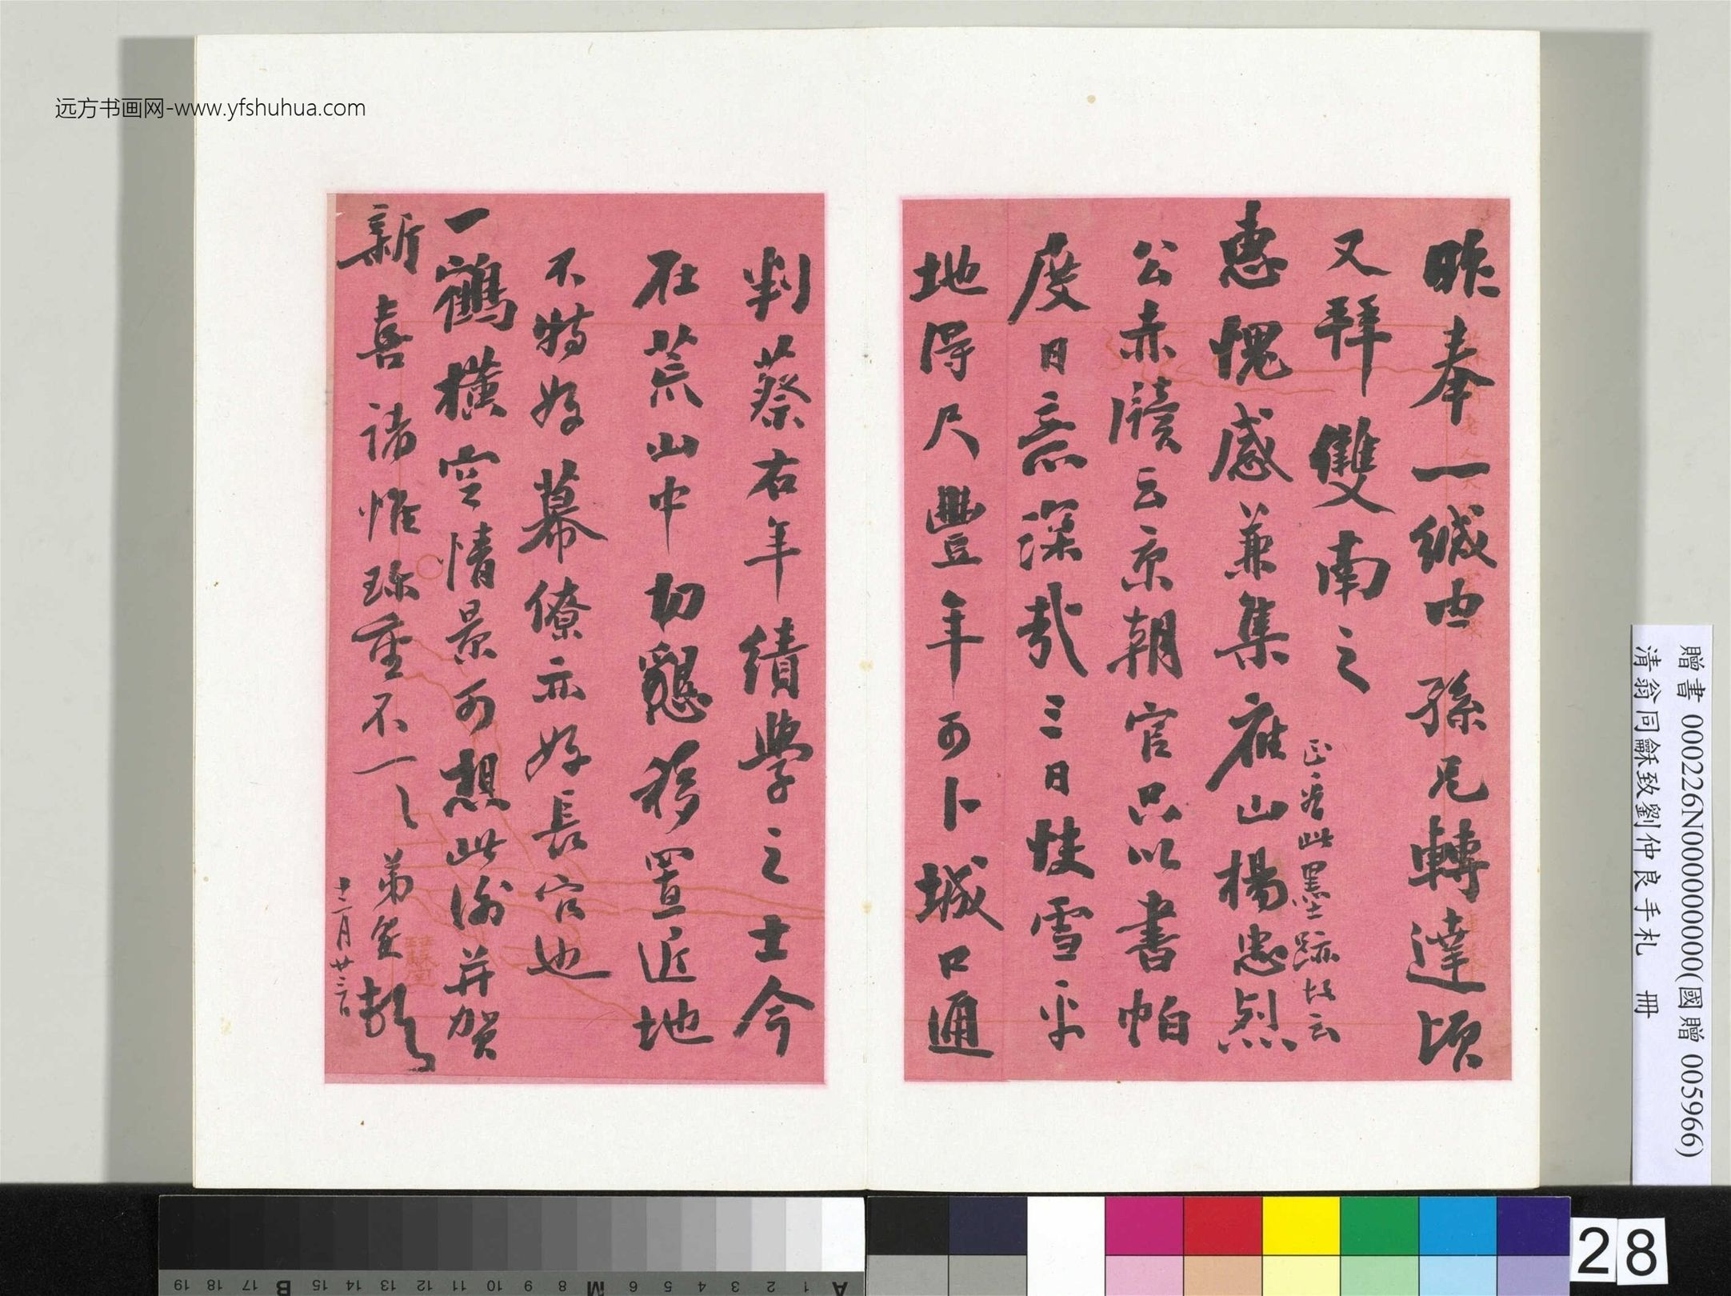 远方书画网-www.yfshuhua.com
昨奉一缄由孫兄轉達頃
又拜雙南之
惠愧感兼集應山楊忠烈
正看此墨跡故云
公赤牘云京朝官只以書帕
度日意深哉三日快雪平
地得尺豐年可卜城口通
判蔡右年績學之士今
在荒山中切懇移置近地
不特好幕僚亦好長官也
一鶴橫空情景可想此謝并賀
新喜諸惟珍重不一一 弟 龢 頓首
十二月廿三日
贈書 000226N000000000(國贈 005966)
清翁同龢致劉仲良手札 冊
28